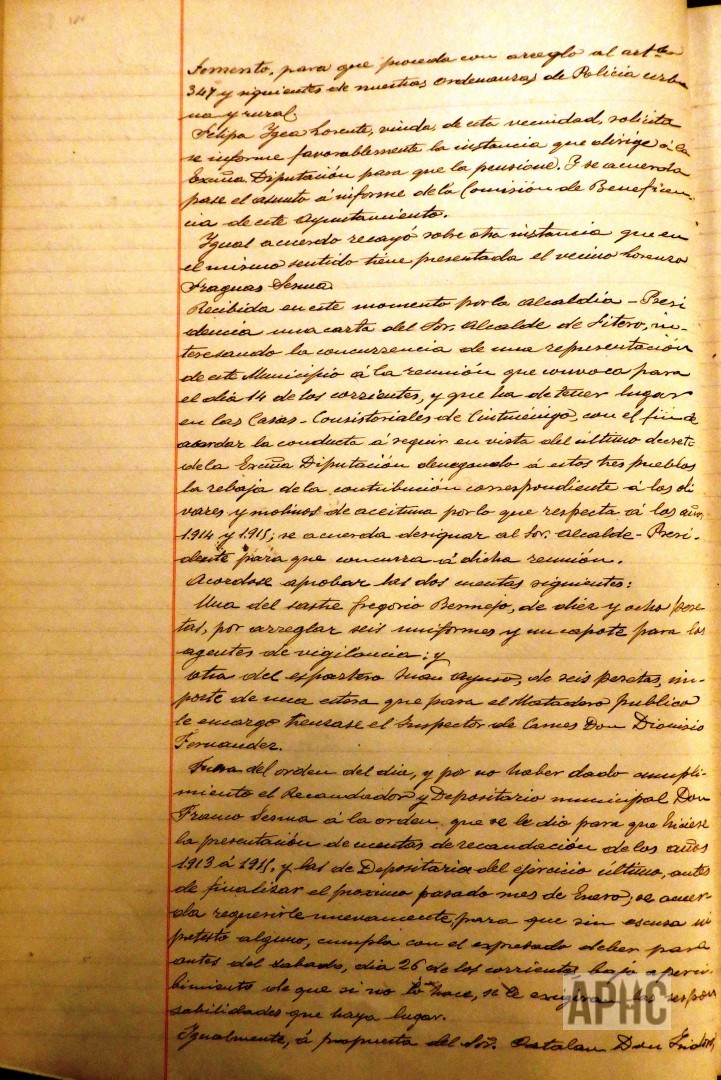 Fomento, para que proceda con arreglo al artículo
347 y siguientes de nuestras Ordenanzas de Policía urba
na y rural.
Felipa Ygea Lorente, viuda, de esta vecindad, solicita
se informe favorablemente la instancia que dirige á la
Excma Diputación para que la pensione. Y se acuerda
pase el asunto á informe de la Comisión de Beneficen-
cia de este Ayuntamiento.
Igual acuerdo recayó sobre otra instancia que en
el mismo sentido tiene presentada el vecino Lorenzo
Fraguas Sesma
Recibida en este momento por la Alcaldía-Presi
dencia una carta del Sor. Alcalde de Fitero, in-
teresando la concurrencia de una representación
de este Municipio á la reunión que convoca para
el dia 14 de los corrientes, y que ha de tener lugar
en las Casas-Consistoriales de Cintruénigo, con el fin de
acordar la conducta á seguir en vista del último decreto
de la Excma Diputación denegando á estos tres pueblos
la rebaja de la contribución correspondiente á los oli
vares y molinos de aceituna por lo que respecta á los años
1914 y 1915; se acuerda designar al Sor. Alcalde-Presi-
dente para que concurra á dicha reunión.
Acordose aprobar las dos cuentas siguientes:
Una del sastre Gregorio Bermejo, de diez y ocho pese
tas, por arreglar seis uniformes y un capote para los
agentes de vigilancia: y
otra del espartero Juan Ayuso, de seis pesetas, im-
porte de una estera que para el Matadero publico
le encargo trenzase el Inspector de Carnes Don Dionisio
Fernandez.
Fuera del orden del dia, y por no haber dado cumpli-
miento el Recaudador y Depositario municipal Don
Franco Sesma á la orden que se le dio para que hiciese
la presentación de cuentas de recaudación de los años
1913 á 1915, y las de Depositaria del ejercicio último, antes
de finalizar el proximo pasado mes de Enero; se acuer-
da requerirle nuevamente, para que sin escusa ni
pretesto alguno, cumpla con el expresado deber para
antes del sabado, dia 26 de los corrientes bajo aperci
bimiento de que si no lo hace, se le exigiran las respon
sabilidades que haya lugar.
Igualmente, á propuesta del Sor. Catalan Don Isidoro,
APHC